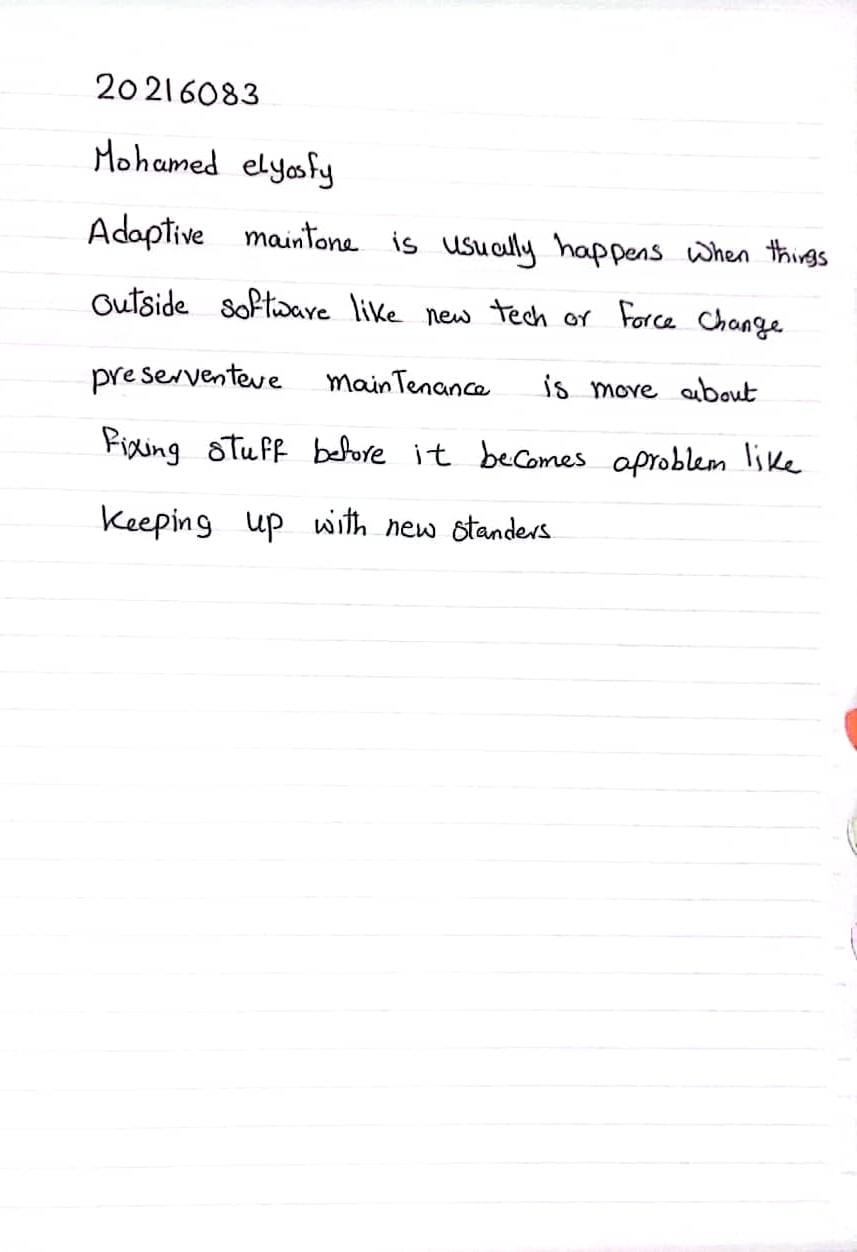 20216083
Mohamed elyosfy
Adaptive maintone is usually happens when things
outside software like new tech or force change
preserventeve maintenance is more about
fixing stuff before it becomes aproblem like
keeping up with new standers